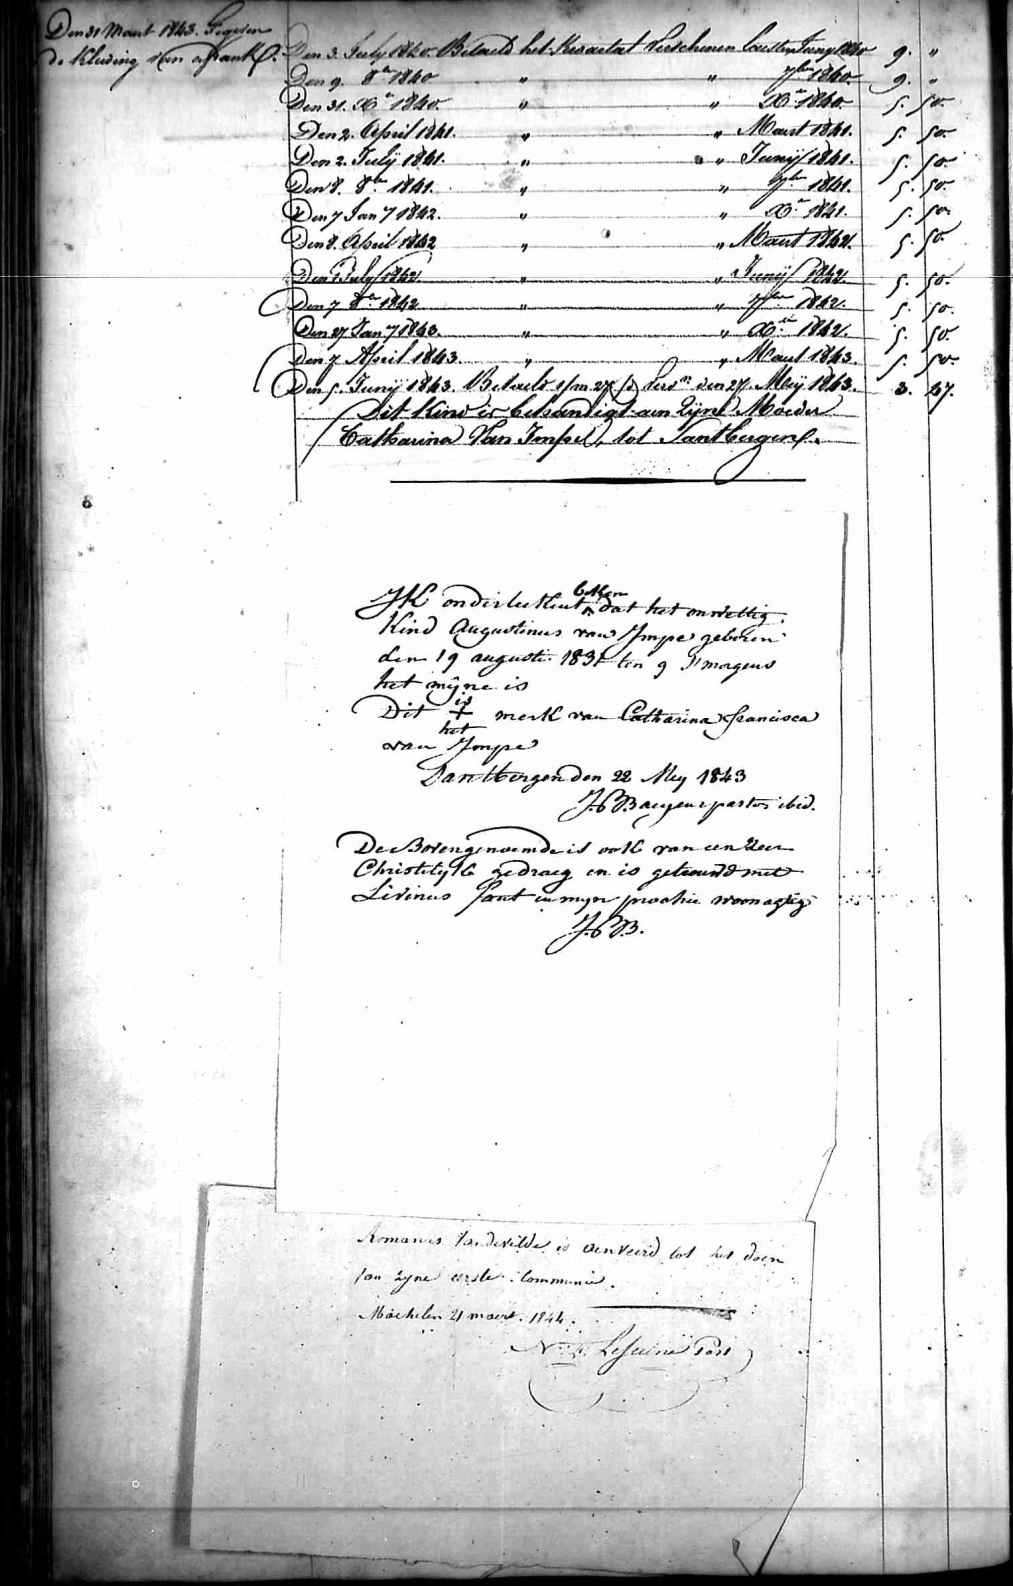 Den 31 Maart 1843. Gegeven
de Kleeding van
Den 3. July 1840. Betaeld het Kwartal Verschenen lauste Juny 1840 9. "
Den 9. 8br 1840 " " 7ber 1840. 9. "
Den 31. Xr 1840. " " Xr 1840. 5. 50.
Den 2. April 1841. " " Maart 1841. 5. 50.
Den 2. Julij 1841. " " Junij 1841. 5. 50.
Den 8. 8br 1841. " " 7br 1841. 5. 50.
Den 7 Jany 1842. " " Xr 1841. 5. 50.
Den 8. April 1842 " " Maart 1842. 5. 50.
Den 1 July 1842. " " Junij 1842. 5. 50.
Den 7 8br 1842 " " 7ber 1842. 5. 50.
Den 27 Jany 1843. " " Xr 1842. 5. 50.
Den 7 April 1843. " " Maart 1843. 5. 50.
Den 5. Junij 1843. Betaeld den 27. Meij 1843. 3. 27.
Dit Kind is behandigt aen Zijne Moeder
Catharina Van Impe, tot Santbergen.
8
IK onderteekent beken dat het onwettig
Kind Augustinus van Impe geboren
den 19 augusti 1831 ten 9 s'morgens
het mijne is
Dit is + het merk van Catharina francisca
van Impe
Santbergen den 22 Mey 1843
J.B. Baeyens pastor ibid.
De Bovengenoemde is ook van een Zeer
Christelyk gedraeg en is getrouwd met
Livinus in myn prochie woonagtig
J.B.B.
Romanus Vandevelde is aenveerd tot het doen
van zyne eerste Communie.
Machelen 21 maert. 1844.
Past